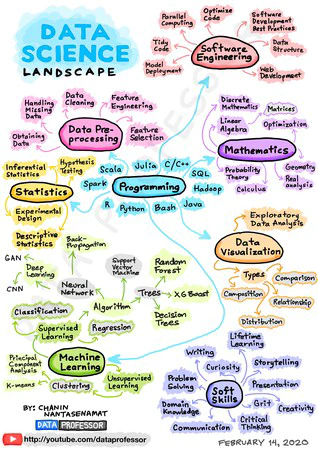 DATA
SCIENCE
LANDSCAPE
Parallel
Computing
Optimize
Code
Software
Development
Best Practices
Tidy
Code
Data
Structure
Model
Deployment
Web
Development
Software
Engineering
Handling
Missing
Data
Data
Cleaning
Feature
Engineering
Obtaining
Data
Feature
Selection
Data Pre-
processing
Discrete
Mathematics
Matrices
Linear
Algebra
Optimization
Mathematics
Probability
Theory
Geometry
Calculus
Real
analysis
Inferential
Statistics
Hypothesis
Testing
Statistics
Experimental
Design
Descriptive
Statistics
Scala
Julia
C/C++
SQL
Spark
Programming
Hadoop
R
Python
Bash
Java
Exploratory
Data Analysis
Data
Visualization
Types
Comparison
Composition
Relationship
Distribution
Back-
Propagation
GAN
Deep
Learning
CNN
Neural
Network
Support
Vector
Machine
Random
Forest
Trees
XG Boost
Decision
Trees
Classification
Algorithm
Supervised
Learning
Regression
Principal
Component
Analysis
Machine
Learning
K-means
Clustering
Unsupervised
Learning
Lifetime
Learning
Writing
Curiosity
Storytelling
Problem
Solving
Presentation
Soft
Skills
Domain
Knowledge
Grit
Creativity
Communication
Critical
Thinking
BY: CHANIN
NANTASENAMAT
DATA PROFESSOR
http://youtube.com/dataprofessor
FEBRUARY 14, 2020